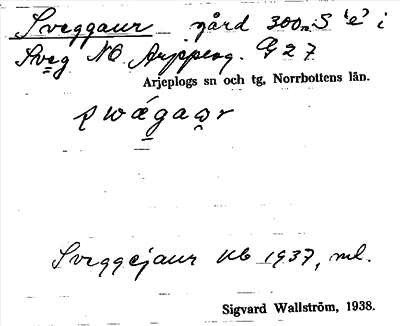 Sveggaur gård 300 m S 'e' i
Sveg NO Arjeplog. G 27
Arjeplogs sn och tg, Norrbottens län.
Sveggejaur kb 1937, ml.
Sigvard Wallström, 1938.